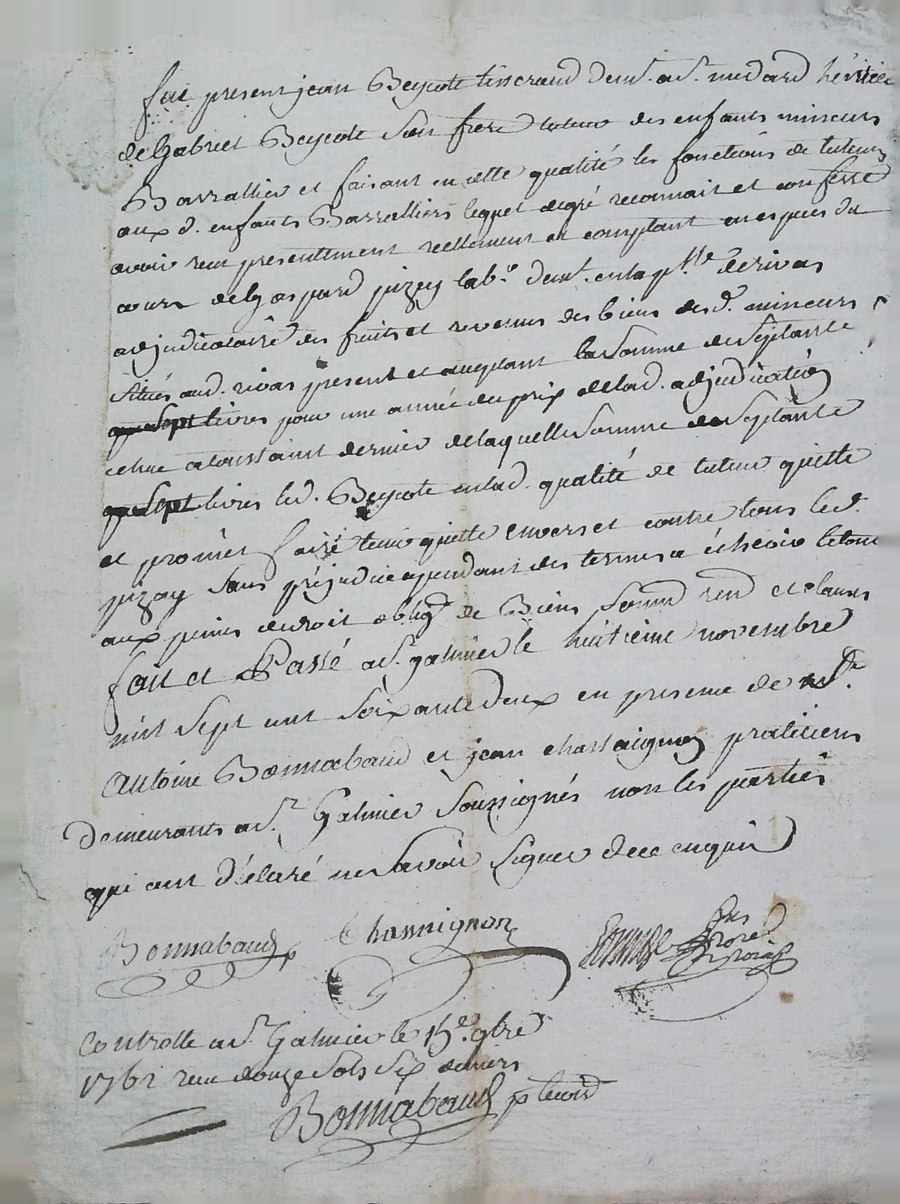 fut present jean Beycote tisserand demt. a st. medard héritier
de Gabriel Beycote son frere tuteur des enfants mineurs
Barrallier et faisant en cette qualité les fonctions de tuteur
aux d. enfants Barralliers lequel degré reconnait et confesse
avoir reçu presentement reellement et comptant en especes du
cours de Gaspard pizey labr. demt. en la p.sse de rivas
adjudicataire des fruits et revenus des biens des d. mineurs
situés aud. rivas present et acceptant la somme de septante
sept livres pour une année du prix de lad. adjudication
echue a toussaint dernier de laquelle somme de septante
sept livres led. Beycote en lad. qualité de tuteur quitte
et promet faire tenir quitte envers et contre tous led.
pizay sans préjudice cependant des termes a échoir le tout
aux peines de droit oblig. de Biens soumd. rend. et clauses
fait et Passé a st. galmier le huitième novembre
mil sept cent soixante deux en presence de Sr.
Antoine Bonnabaud et jean chassaignon praticiens
demeurants a st. Galmier soussignés non les parties
qui ont déclaré ne savoir signer de ce enquis
Bonnabaud Chassaignon
Controllé a st. Galmier le 15e. 9bre
1762 reçu douze sols six deniers
Bonnabaud